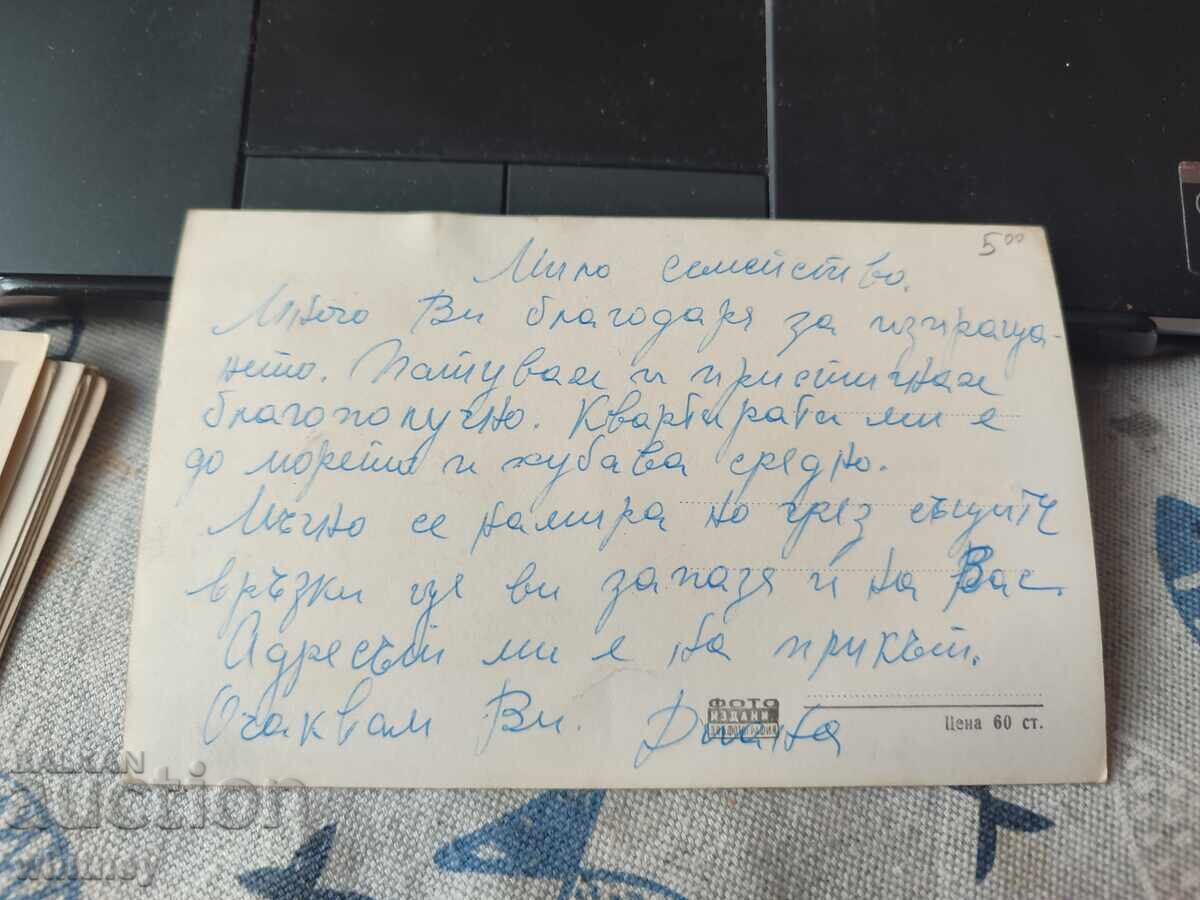 5⁰⁰
Мило семейство.
Много Ви благодаря за изпраща-
нето. Пътувам и пристигнах
благополучно. Квартирата ми е
до морето и хубава средно.
Мъчно се намира но чрез същите
връзки ще ви запазя и на Вас.
Адресът ми е на пликът.
Очаквам Ви.
ФОТО
ИЗДАНИ
Цена 60 ст.
BALKAN
Auction
whitney